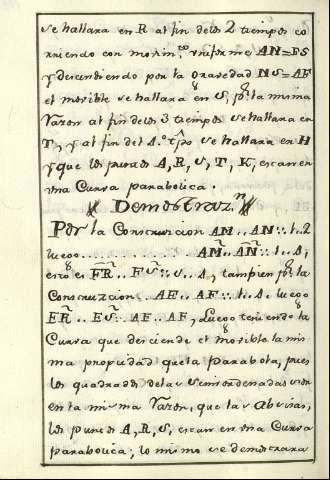 se hallara en R al fin delos 2 tiempos co
rriendo con movim.to uniforme AN=FS
y descendiendo por la gravedad NS=AF
el movible se hallara en S, pr la misma
razon al fin delos 3 tiempos se hallara en
T, y al fin del 4.º tpo se hallara en H
y que los puntos A, R, S, T, K, estan en
una Curva parabolica.
Demostraz.n
Por la Construczion AM..AN::1..2
luego AM²..AN²::1..4,
esto es FR²..FS²::1..4, tambien pr la
Construczion..AE..AF::1..4. luego
ER²..FS²::AE..AF, Luego teniendo la
Curva que desciende el movible la mis
ma propiedad que la parabola, pues
los quadrados delas Semiordenadas son
en la misma razon, que las Abcisas,
los puntos A, R, S, estan en una Curva
parabolica; lo mismo se demostrara